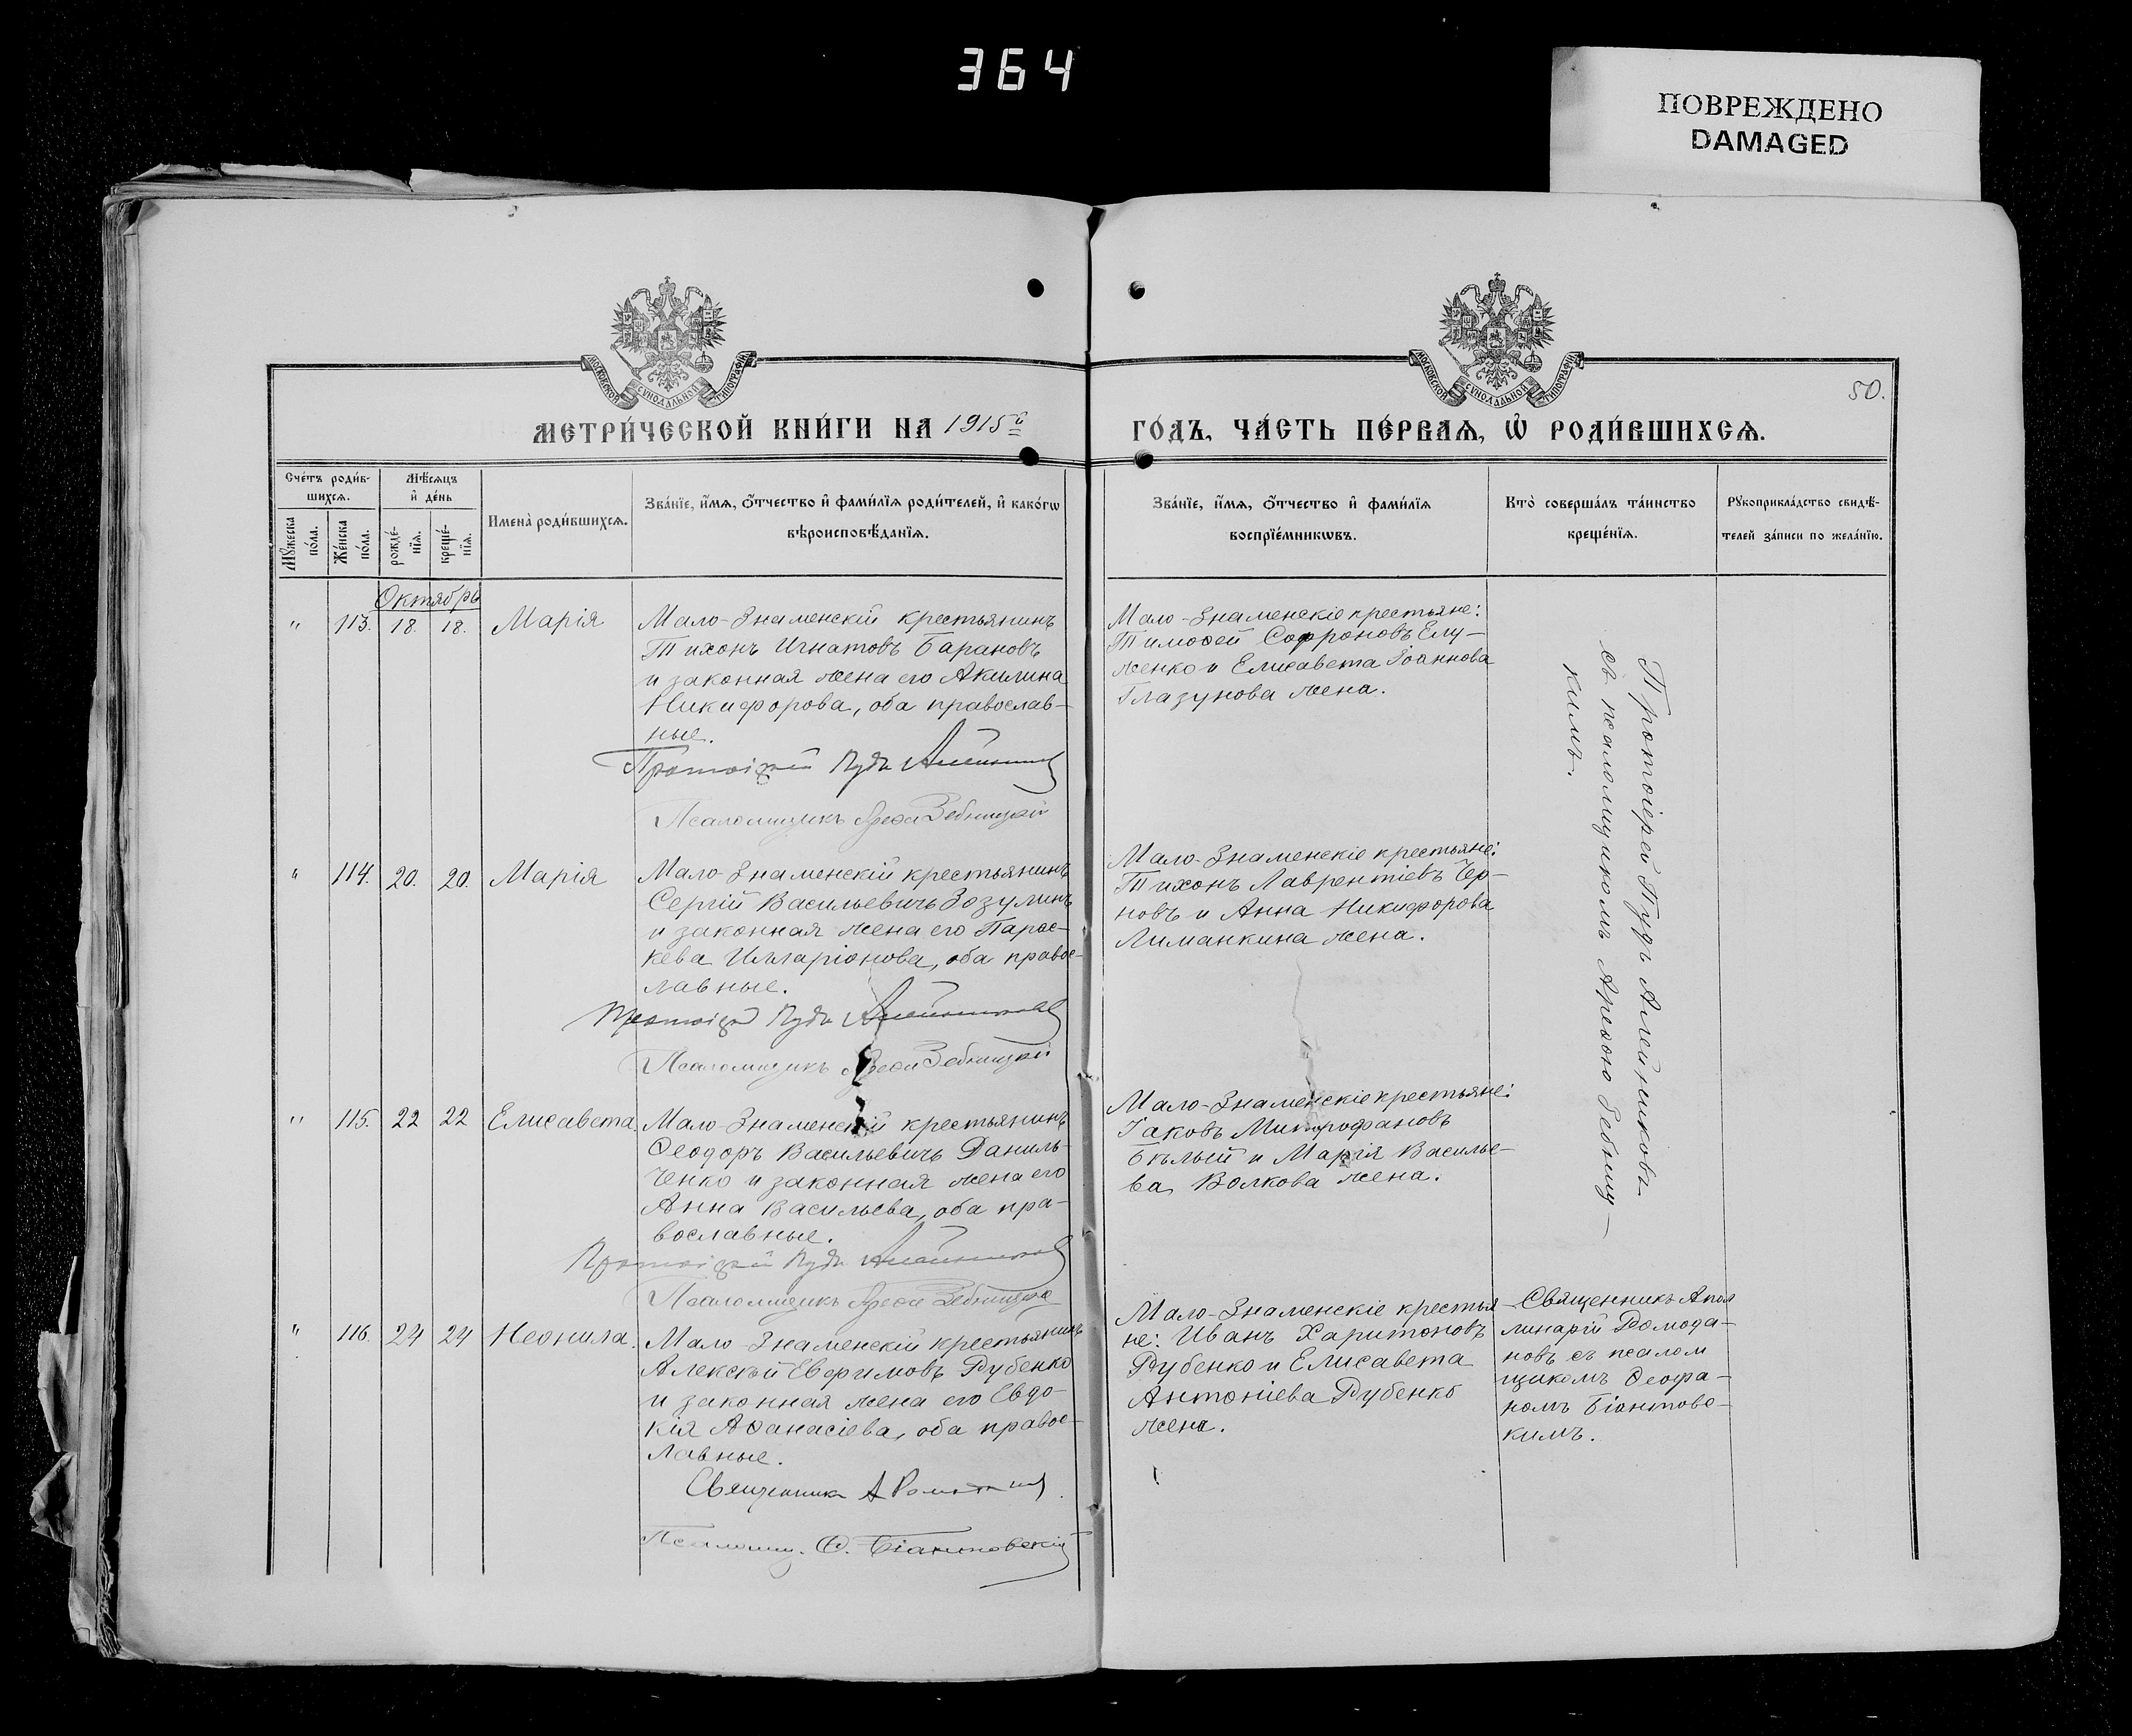 364
ПОВРЕЖДЕНО
DAMAGED
МОСКОВСКОЙ СѴНОДАЛЬНОЙ ТИПОГРАФІИ
МОСКОВСКОЙ СѴНОДАЛЬНОЙ ТИПОГРАФІИ
50.
МЕТРИ́ЧЕСКОЙ КНИ́ГИ НА 1915й
ГО́ДЪ, ЧА́СТЬ ПЕ́РВАѦ, Ѡ РОДИ́ВШИХСѦ.
Сче́тъ роди́в-
шихсѧ.
Мꙋ́жеска
по́ла.
Же́нска
по́ла.
Мѣ́сѧцъ
и҆ де́нь
рожде́-
нїѧ.
креще́-
нїѧ.
Имена̀ роди́вшихсѧ.
Зва́нїе, и҆́мѧ, о҆́тчество и҆ фами́лїѧ роди́телей, и҆ како́гѡ
вѣроисповѣ́данїѧ.
Зва́нїе, и҆́мѧ, о҆́тчество и҆ фами́лїѧ
воспрїе́мникѡвъ.
Кто̀ соверша́лъ та́инство
креще́нїѧ.
Рꙋкоприкла́дство свидѣ́-
телей за́писи по жела́нїю.
Октябрь
" 113. 18. 18. Марія
Мало-Знаменскій крестьянинъ
Тихонъ Игнатовъ Барановъ
и законная жена его Акилина
Никифорова, оба православ-
ные.
Протоіерей Пудъ Алейниковъ
Псаломщикъ Арефа Зебницкій
Мало-Знаменскіе крестьяне:
Тимоѳей Софроновъ Елу-
женко и Елисавета Іоаннова
Глазунова жена.
Протоіерей Пудъ Алейниковъ
съ псаломщикомъ Арефою Зебниц-
кимъ.
" 114. 20. 20. Марія
Мало-Знаменскій крестьянинъ
Сергій Васильевичъ Зозулинъ
и законная жена его Парас-
кева Илларіонова, оба правос-
лавные.
Протоіерей Пудъ Алейниковъ
Псаломщикъ Арефа Зебницкій
Мало-Знаменскіе крестьяне:
Тихонъ Лаврентіевъ Чер-
новъ и Анна Никифорова
Лиманкина жена.
" 115. 22 22 Елисавета.
Мало-Знаменскій крестьянинъ
Ѳеодоръ Васильевичъ Даниль-
ченко и законная жена его
Анна Васильева, оба пра-
вославные.
Протоіерей Пудъ Алейниковъ
Псаломщикъ Арефа Зебницкій
Мало-Знаменскіе крестьяне:
Іаковъ Митрофановъ
Бѣлый и Марія Василье-
ва Волкова жена.
" 116. 24 24 Неонила.
Мало-Знаменскій крестьянинъ
Алексѣй Евфимовъ Рубенко
и законная жена его Евдо-
кія Аѳанасіева, оба правос-
лавные.
Священникъ А Ромода
Псаломщ. Ѳ. Біантовскій
Мало-Знаменскіе крестья-
не: Иванъ Харитоновъ
Рубенко и Елисавета
Антоніева Рубенко
жена.
Священникъ Апол
линарій Ромода-
новъ съ псалом
щикомъ Ѳеофа-
номъ Біантовс-
кимъ.